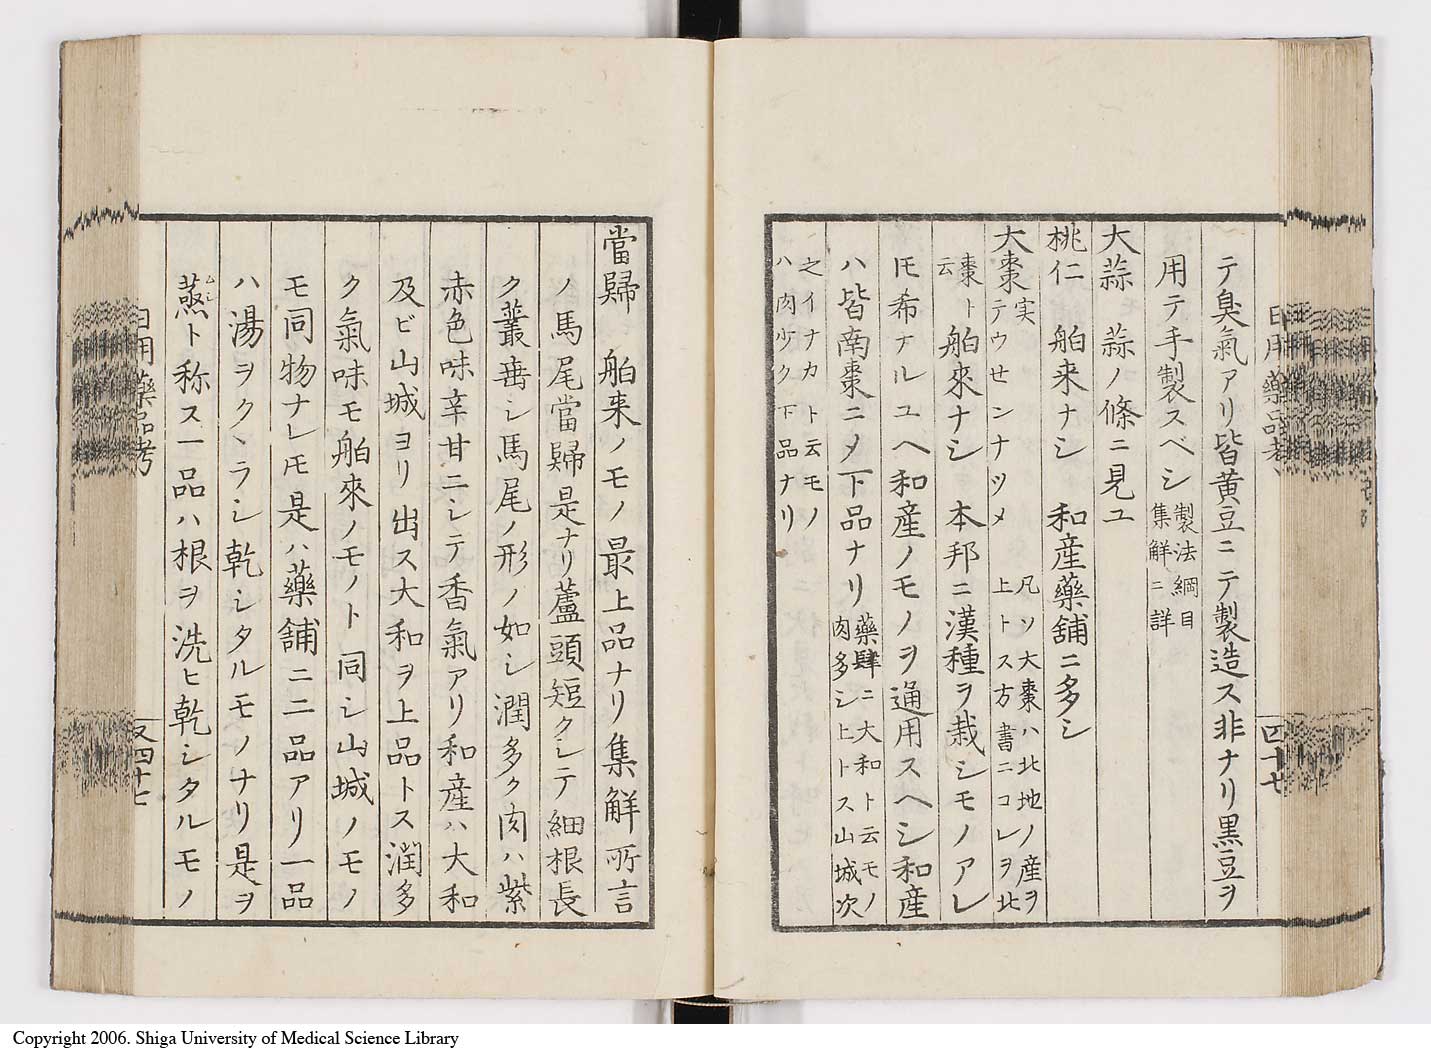 テ臭氣アリ皆黄豆ニテ製造ス非ナリ黒豆ヲ
用テ手製スベシ製法綱目
集解ニ詳
大蒜 蒜ノ條ニ見ユ
桃仁 舶来ナシ 和産藥舗ニ多シ
大棗実テウセンナツメ 凡ソ大棗ハ北地ノ産ヲ
上トス方書ニコレヲ北
棗ト
云
舶來ナシ 本邦ニ漢種ヲ栽シモノアレ
𪜈希ナルユヘ和産ノモノヲ通用スヘシ和産
ハ皆南棗ニメ下品ナリ藥肆ニ大和ト云モノ
肉多シ上トス山城次
之イナカト云モノ
ハ肉少ク下品ナリ
日用藥品考
四十七
當歸 舶来ノモノ最上品ナリ集解所言
ノ馬尾當歸是ナリ蘆頭短クシテ細根長
ク叢毎シ馬尾ノ形ノ如シ潤多ク肉ハ紫
赤色味辛甘ニシテ香氣アリ和産ハ大和
及ビ山城ヨリ出ス大和ヲ上品トス潤多
ク氣味モ舶來ノモノト同シ山城ノモノ
モ同物ナレ𪜈是ハ藥舗ニ二品アリ一品
ハ湯ヲクヽラシ乾シタルモノナリ是ヲ
蒸ムシト称ス一品ハ根ヲ洗ヒ乾シタルモノ
日用藥品考
又四十七
Copyright 2006. Shiga University of Medical Science Library